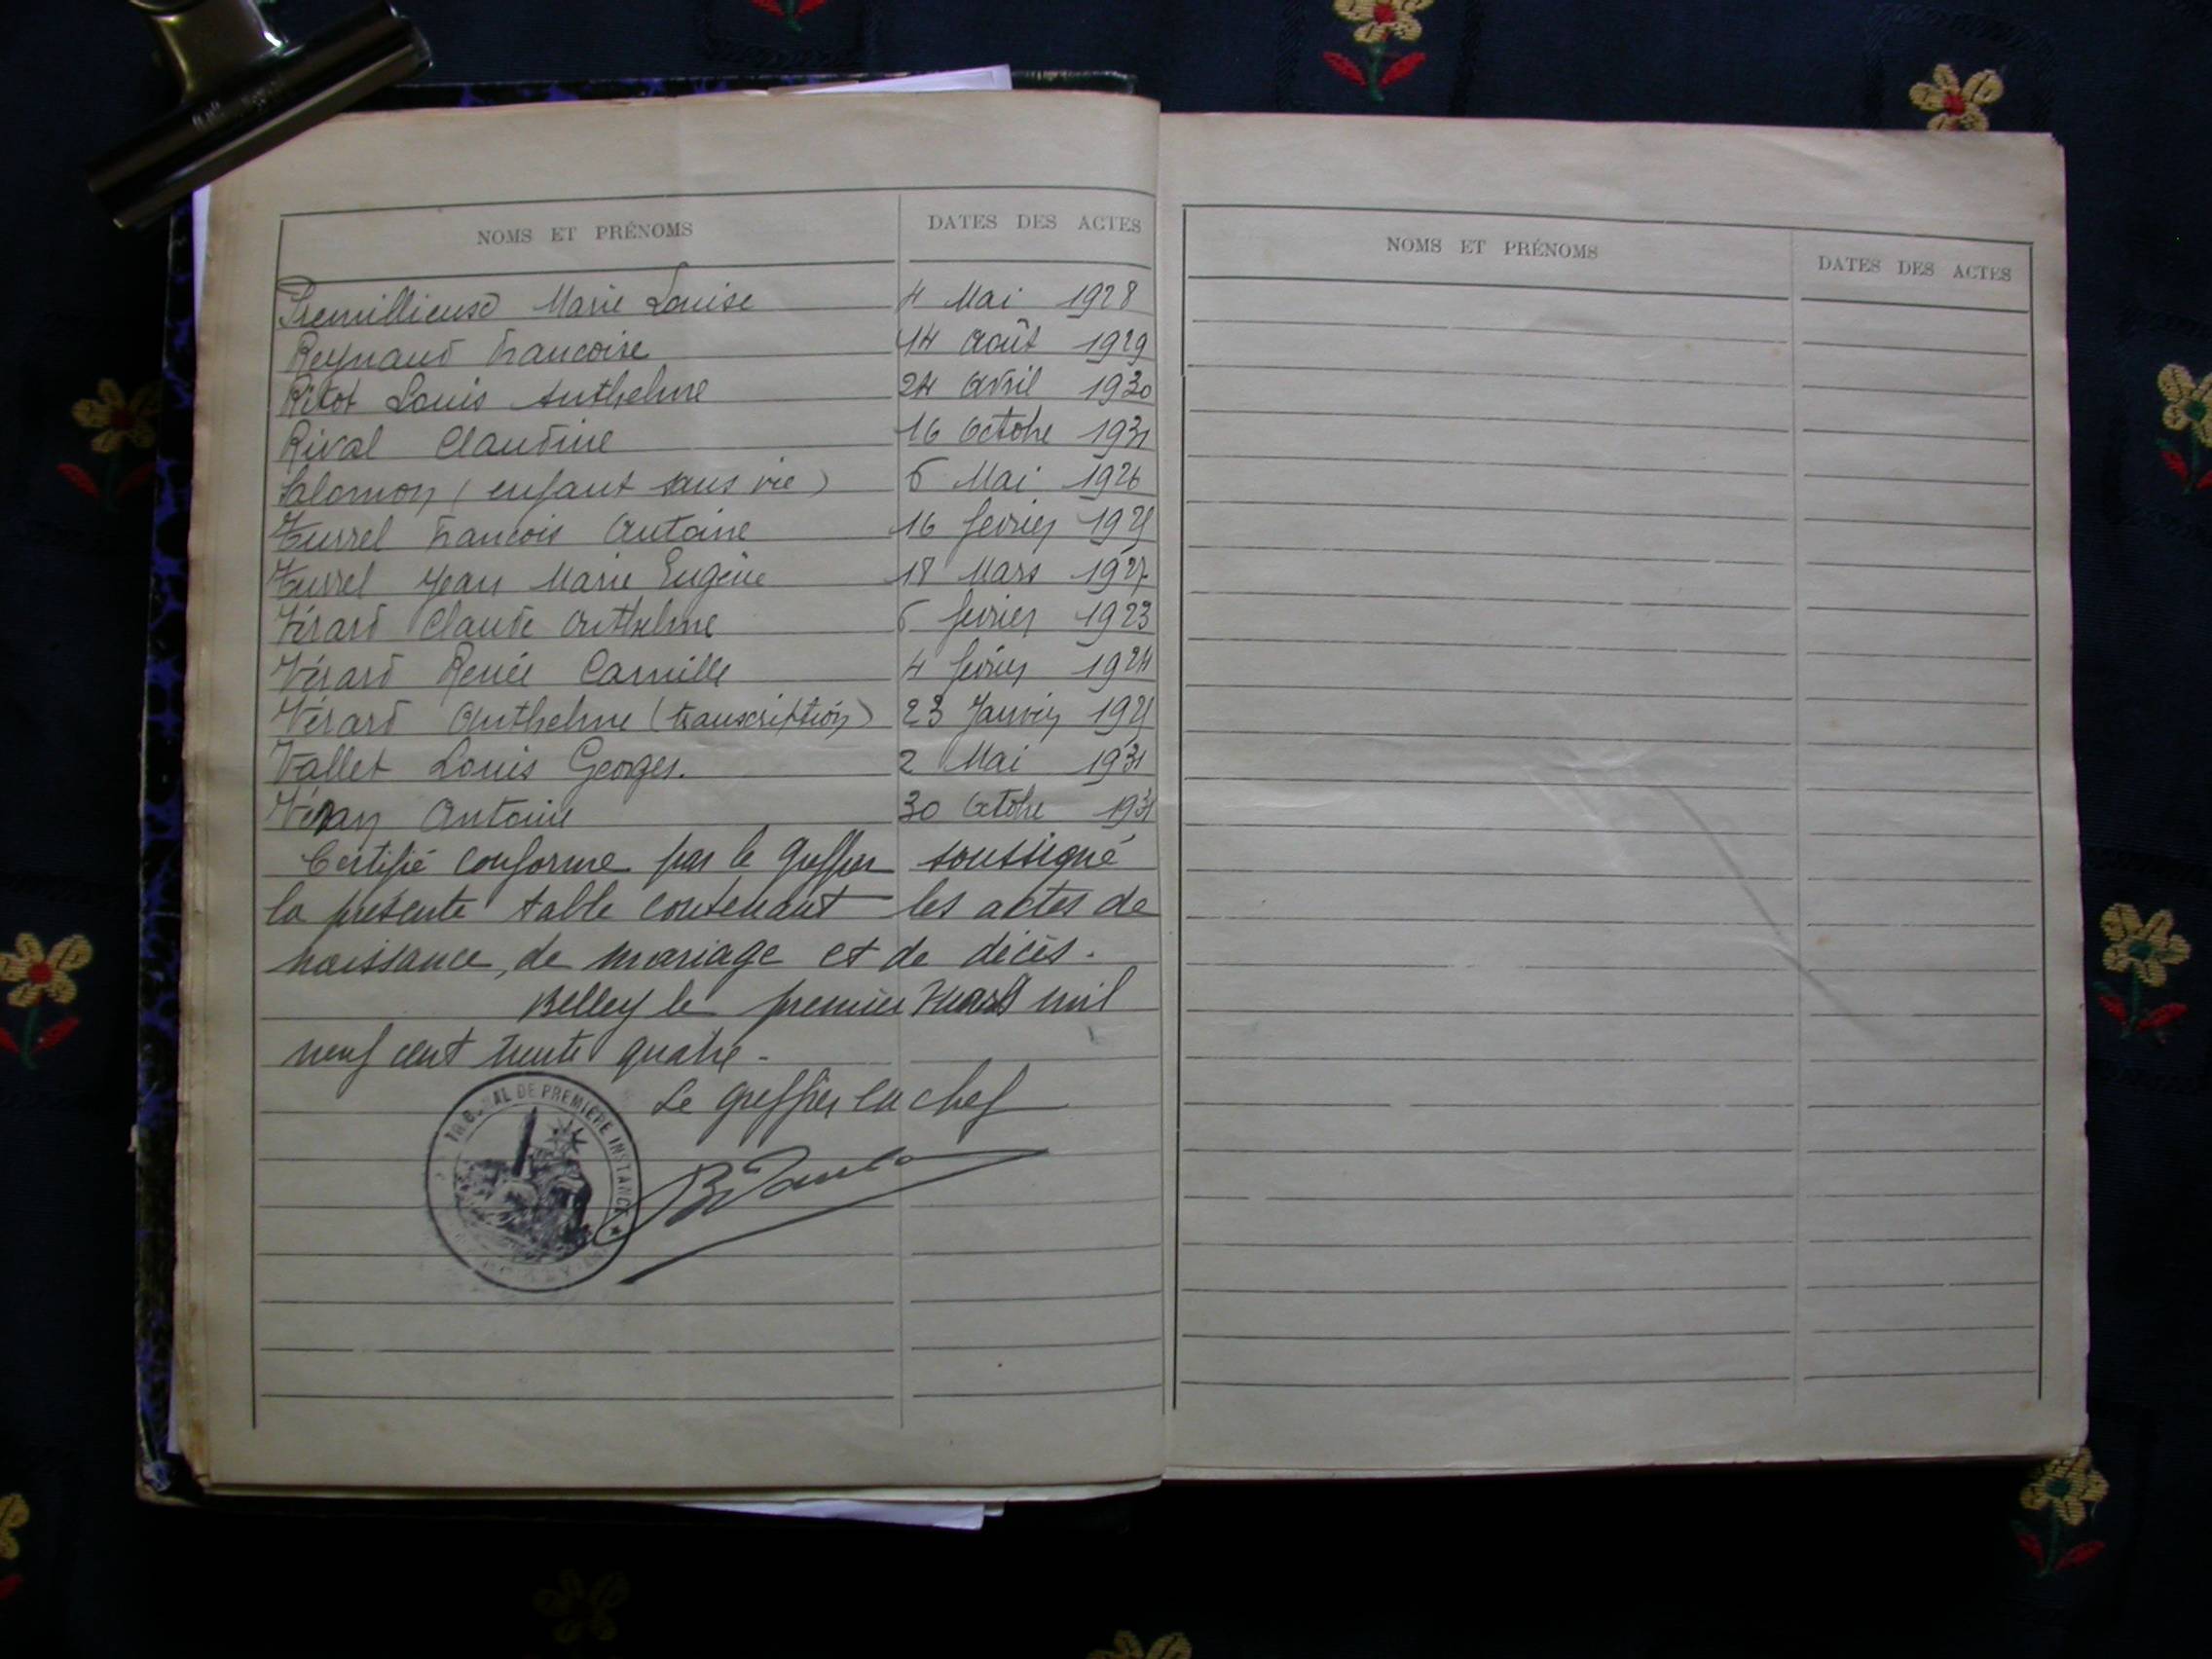 NOMS ET PRÉNOMS DATES DES ACTES
Premillieux Marie Louise 4 Mai 1928
Reynaud Francoise 14 Août 1929
Ritot Louis Anthelme 24 Avril 1930
Rival Claudine 16 Octobre 1931
Salomon (enfant sans vie) 6 Mai 1926
Turrel Francois Antoine 16 fevrier 1925
Turrel Jean Marie Eugène 18 Mars 1927
Vérard Claude Anthelme 6 fevrier 1923
Vérard Renée Camille 4 fevrier 1924
Vérard Anthelme (transcription) 23 Janvier 1925
Vallet Louis Georges. 2 Mai 1931
Véran Antoine 30 Octobre 1931
Certifié conforme par le greffier soussigné
la présente table contenant les actes de
naissance, de mariage et de décès.
Belley le premier Mars mil
neuf cent trente quatre.
Le greffier en chef
TRIBUNAL DE PREMIERE INSTANCE
NOMS ET PRÉNOMS DATES DES ACTES